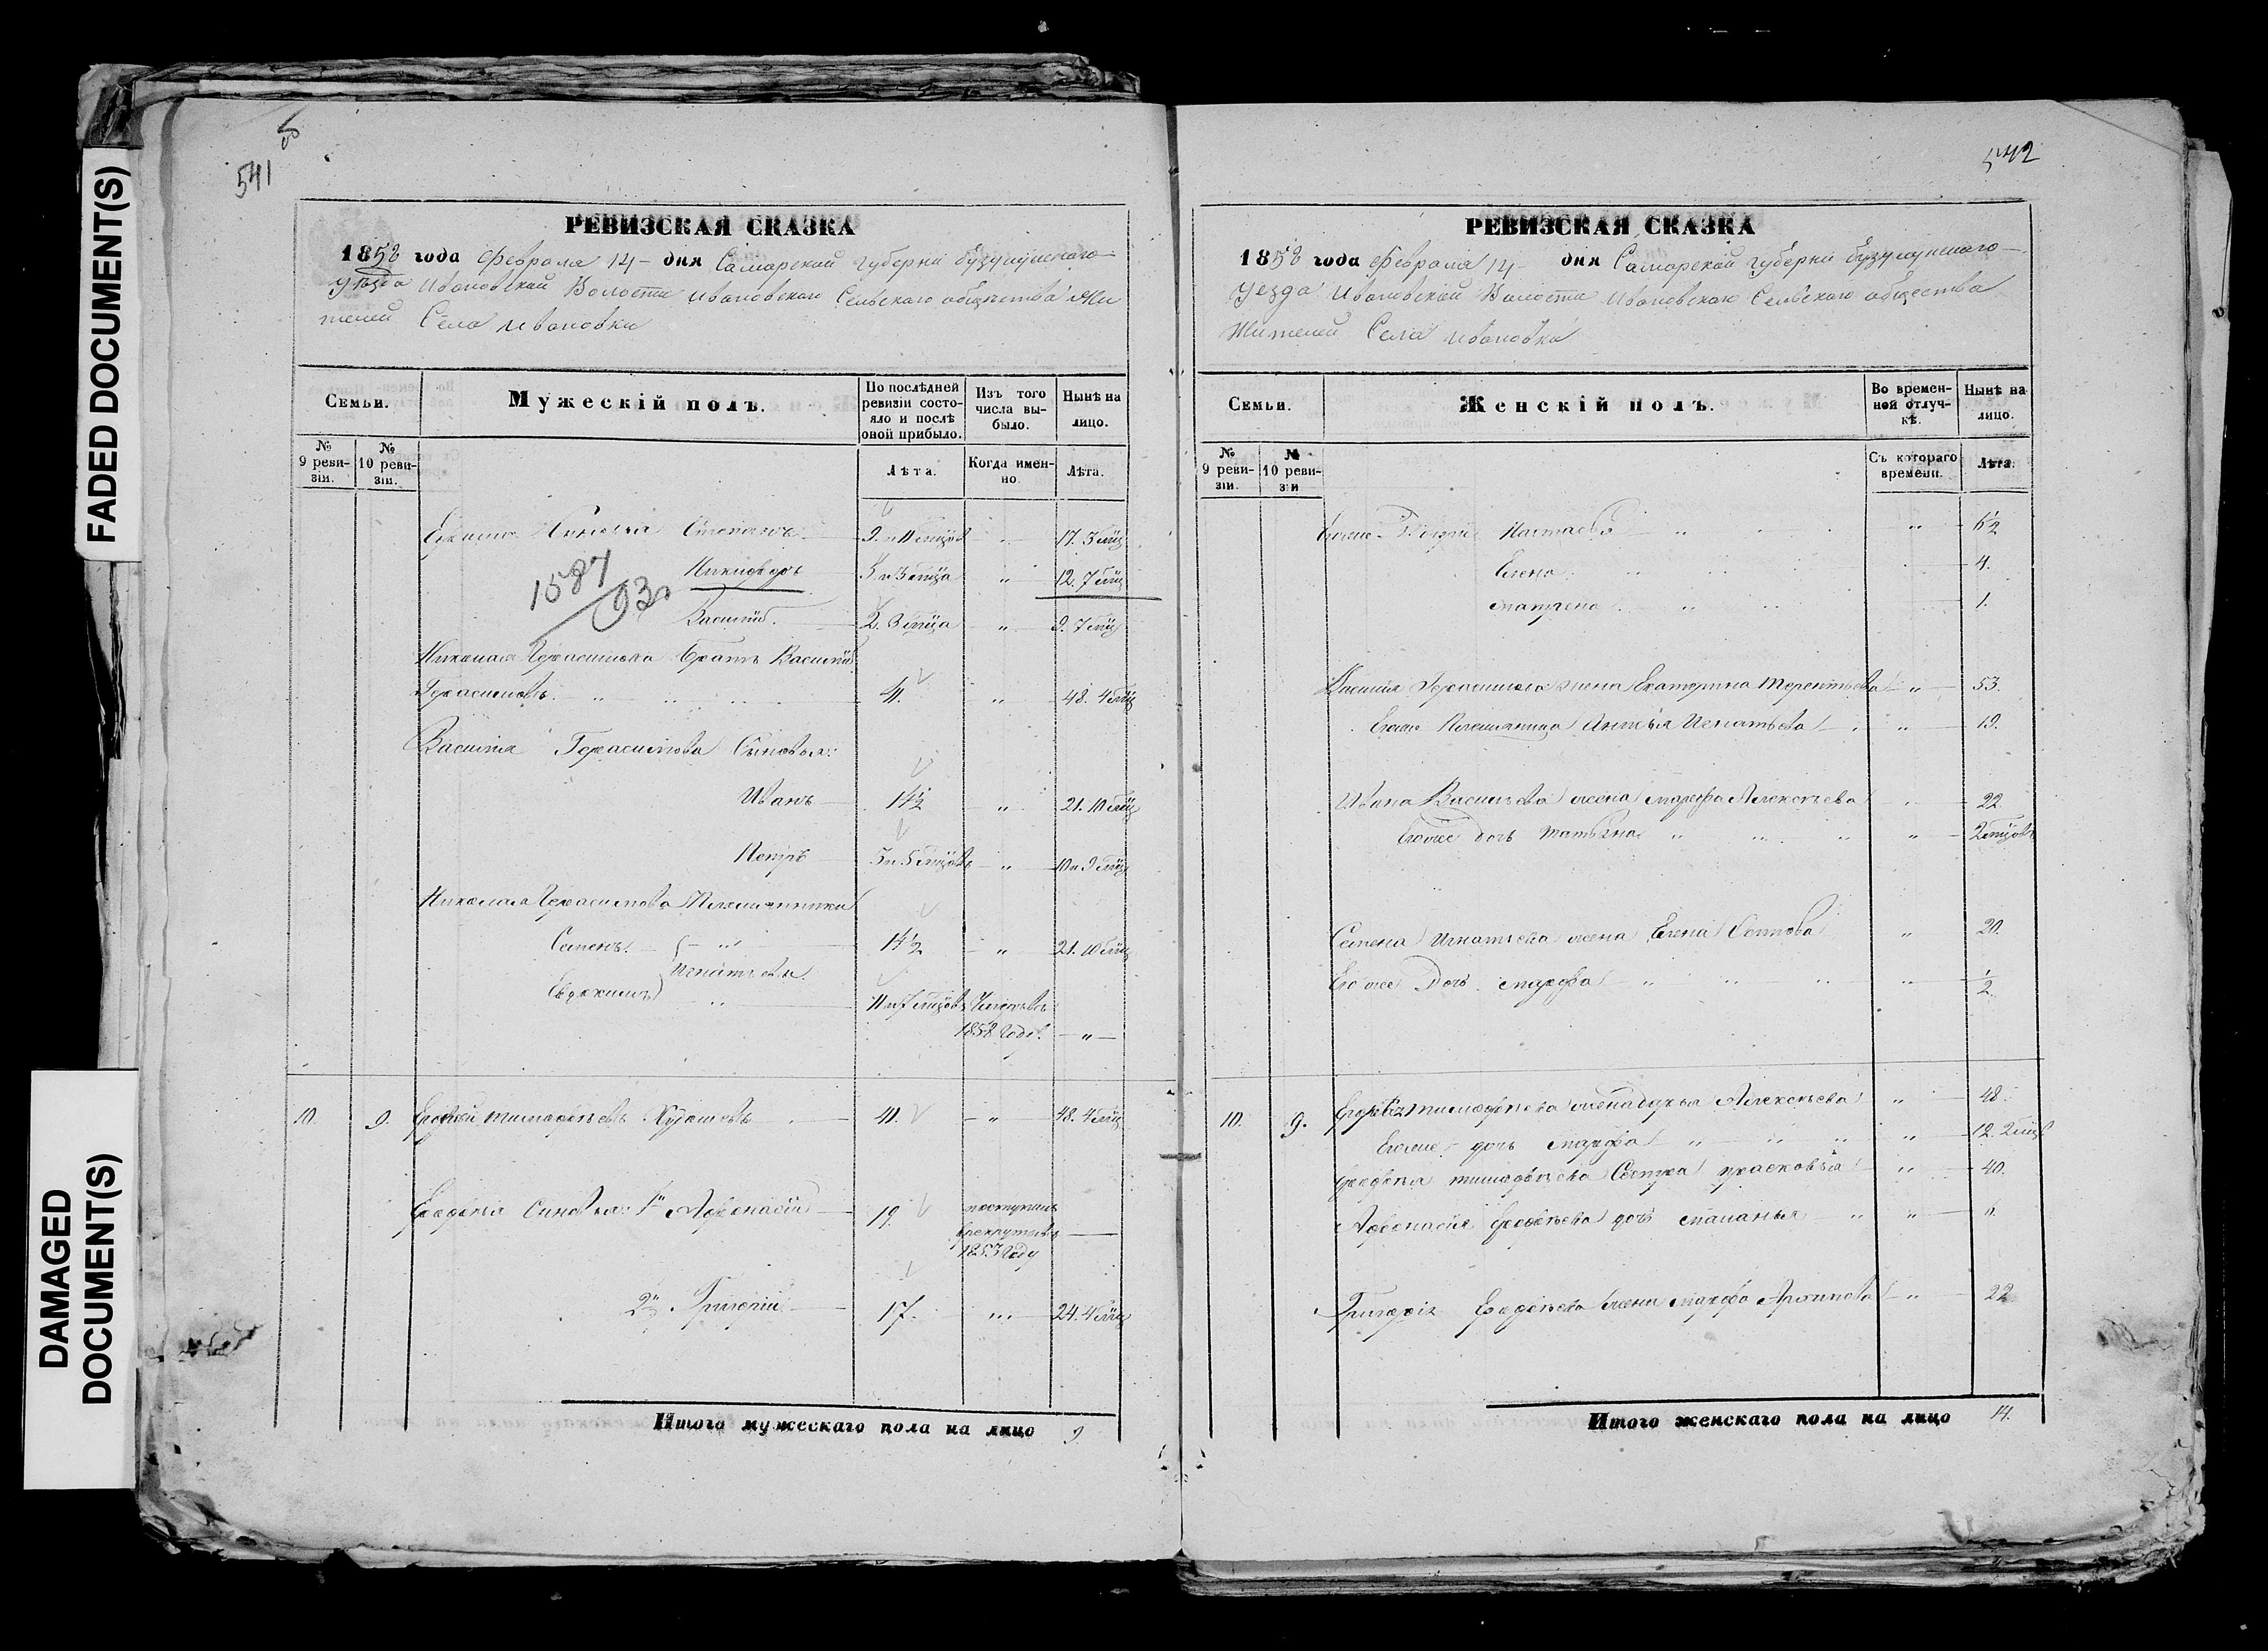 FADED DOCUMENT(S)
DAMAGED
DOCUMENT(S)
541
РЕВИЗСКАЯ СКАЗКА
1858 года Февраля 14 – дня Самарской губерніи Бузулукскаго
уѣзда Ивановской Волости Ивановскаго Сельскаго общества Жи
телей Села Ивановки
Семьи.
Мужескій полъ.
По послѣдней
ревизіи состо-
яло и послѣ
оной прибыло.
Изъ того
числа вы-
было.
Нынѣ на
лицо.
№
9 реви-
зіи.
№
10 реви-
зіи.
Лѣта.
Когда имен-
но.
Лѣта.
Степанъ 17. 3 мѣц
Никифоръ 12. 7 мѣц
1587
Василій. 2. 3 мѣца " 9. 7 мѣц
Николая Герасимова Братъ Василій
Герасимовъ 41. " 48. 4 мѣц
Василія Герасимова Сыновья:
Иванъ 14½ " 21. 10 мѣц
Петръ 3 и 5 мѣцовъ " 10 и 9 мѣц
Николая Герасимова Племянники
Семенъ 14½ " 21. 10 мѣц
Игнатьевы.
11 и 7 мѣцовъ
1858 Года. "
10. 9. Тимофѣевъ 41. " 48. 4 мѣц
Сыновья: 1й Афонасій 19. поступилъ
в рекруты въ
1853 Году
2й Григорій 17. " 24. 4 мѣц
Итого мужескаго пола на лицо 9
542
РЕВИЗСКАЯ СКАЗКА
1858 года Февраля 14 – дня Самарской губерніи Бузулукскаго
уезда Ивановской Волости Ивановскаго Сельскаго общества
Жителей Села Ивановки
Семьи.
Женскій полъ.
Во времен-
ной отлуч-
кѣ.
Нынѣ на
лицо.
№
9 реви-
зіи.
№
10 реви-
зіи
Съ котораго
времени.
Лѣта.
Настасья " 6½
Елена 4.
Матрена 1.
Василія Герасимова жена Екатерина Терентьева " 53.
Егоже Племянница Игнатьева " 19.
Ивана Васильева жена Марфа Алексѣева 22
Егоже дочь Татьяна " 2 мѣцовъ
Семена Игнатьева жена Елена " 20.
Егоже Дочь Марфа " ½
10. 9. Тимофѣева жена Дарья Алексѣева " 48.
Егоже дочь Марфа " 12. 2 мѣц
Тимофѣева Сестра прасковья " 40.
Афонасія дочь маланья " 6.
Григорія жена Марфа Архипова " 22
Итого женскаго пола на лицо 14.